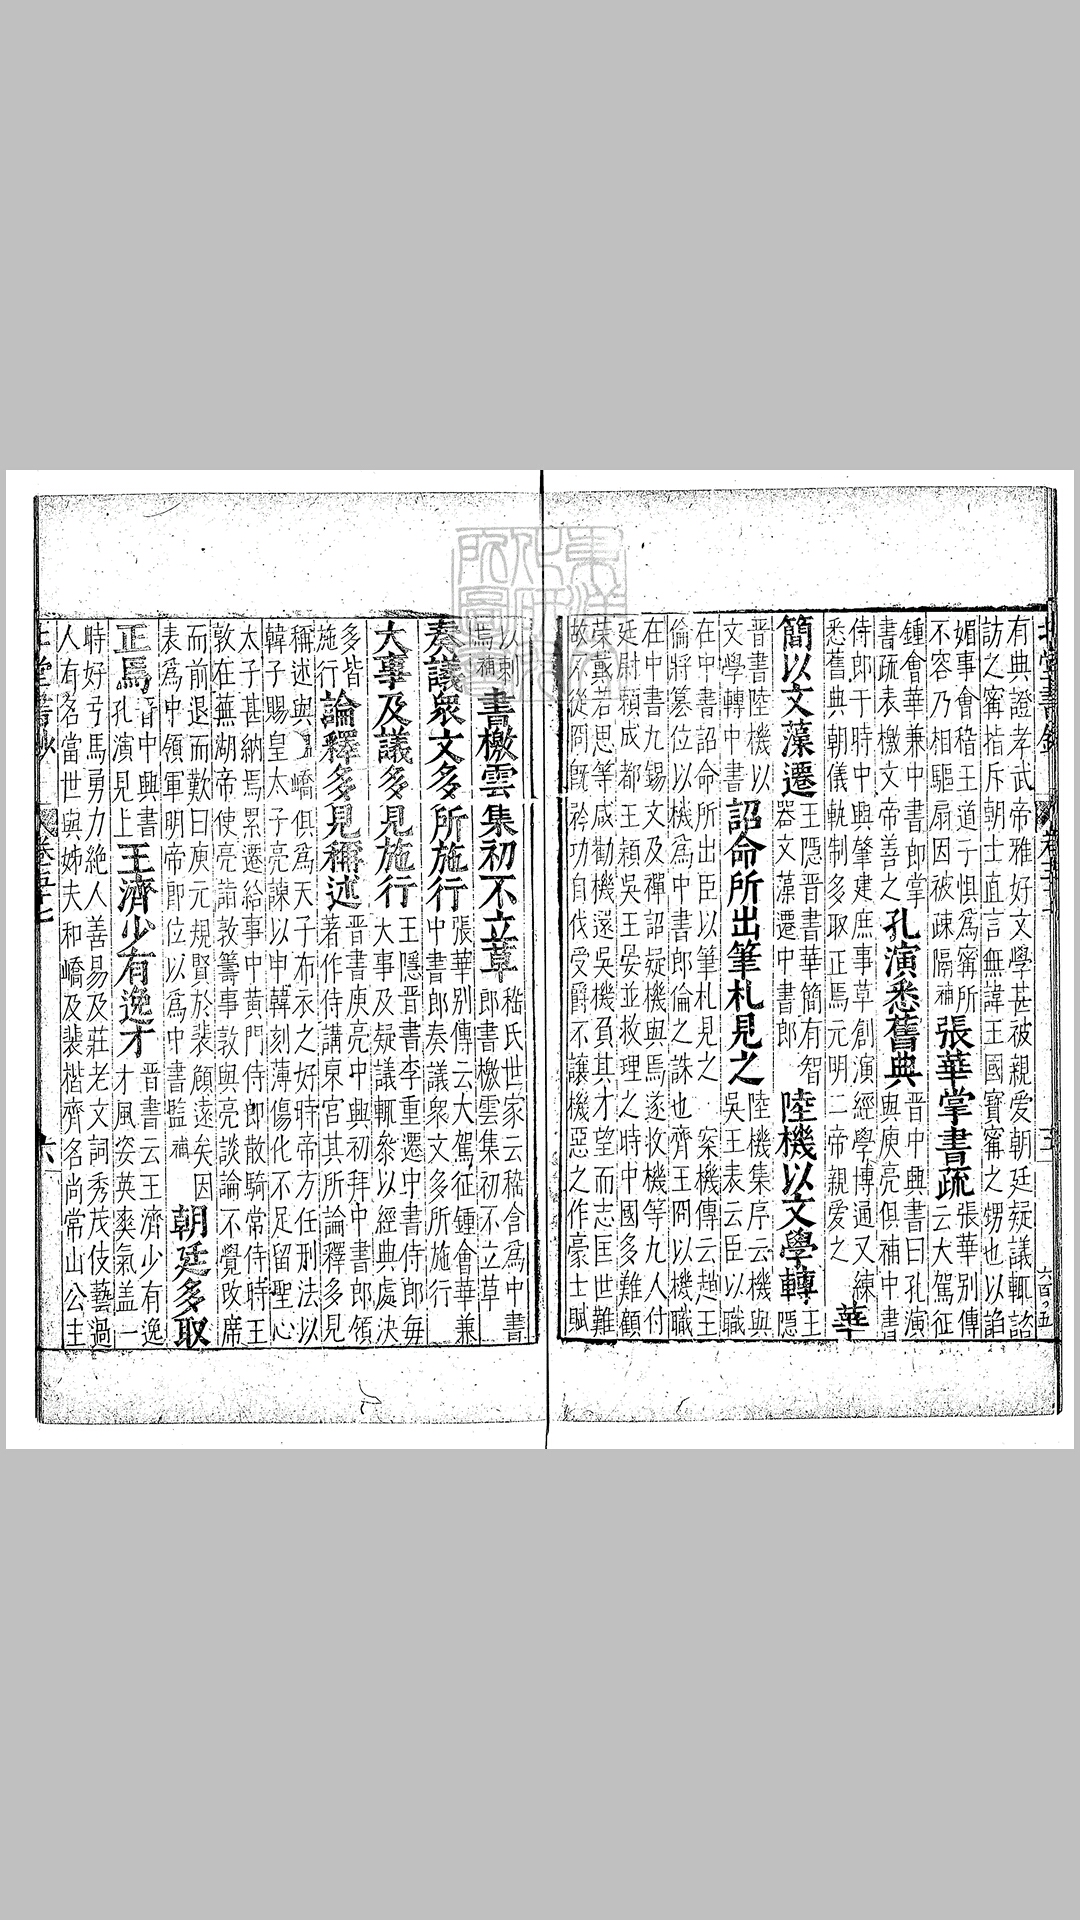 有典證孝武帝雅好文學甚被親愛朝廷疑議輒諮
訪之甯指斥朝士直言無諱王國寶甯之甥也以諂
媚事會稽王道子懼爲甯所
不容乃相驅扇因被疎隔補
張華掌書疏
張華别傳
云大駕征
鍾會華兼中書郎掌
書疏表檄文帝善之
孔演悉舊典
晉中興書曰孔演
與庾亮俱補中書
侍郎于時中興肇建庶事草創演經學博通又練
悉舊典朝儀軌制多取正焉元明二帝親愛之
華
簡以文藻遷
王隱晉書華簡有智
器文藻遷中書郎
陸機以文學轉
王
隱
晉書陸機以
文學轉中書
詔命所出筆札見之
陸機集序云機與
吳王表云臣以職
在中書詔命所出臣以筆札見之 案機傳云趙王
倫將簒位以機爲中書郎倫之誅也齊王冏以機職
在中書九錫文及禪詔疑機與焉遂收機等九人付
廷尉頼成都王穎吳王晏並救理之時中國多難顧
榮戴若思等咸勸機還吳機負其才望而志匡世難
故從冏旣矜功自伐受爵不讓機惡之作豪士賦
以刺
焉補
書檄雲集初不立草
嵇氏世家云嵇含爲中書
郎書檄雲集初不立草
奏議衆文多所施行
張華别傳云大駕征鍾會華兼
中書郎奏議衆文多所施行
大事及議多見施行
王隱晉書李重遷中書侍郎每
大事及疑議輒叅以經典處決
多皆
施行
論釋多見稱述
晉書庾亮中興初拜中書郎領
著作侍講東宮其所論釋多見
稱述與嶠俱爲天子布衣之好時帝方任刑法以
韓子賜皇太子亮諫以申韓刻薄傷化不足留聖心
太子甚納焉累遷給事中黄門侍郎散騎常侍時王
敦在蕪湖帝使亮詣敦籌事敦與亮談論不覺改席
而前退而歎曰庾元規賢於裴頠遠矣因
表爲中領軍明帝即位以爲中書監補
朝廷多取
正焉
晉中興書
孔演見上
王濟少有逸才
晉書云王濟少有逸
才風姿英爽氣盖一
時好弓馬勇力絶人善易及莊老文詞秀茂伎藝過
人有名當世與姊夫和嶠及裴楷齊名尚常山公主
卷五十七
六